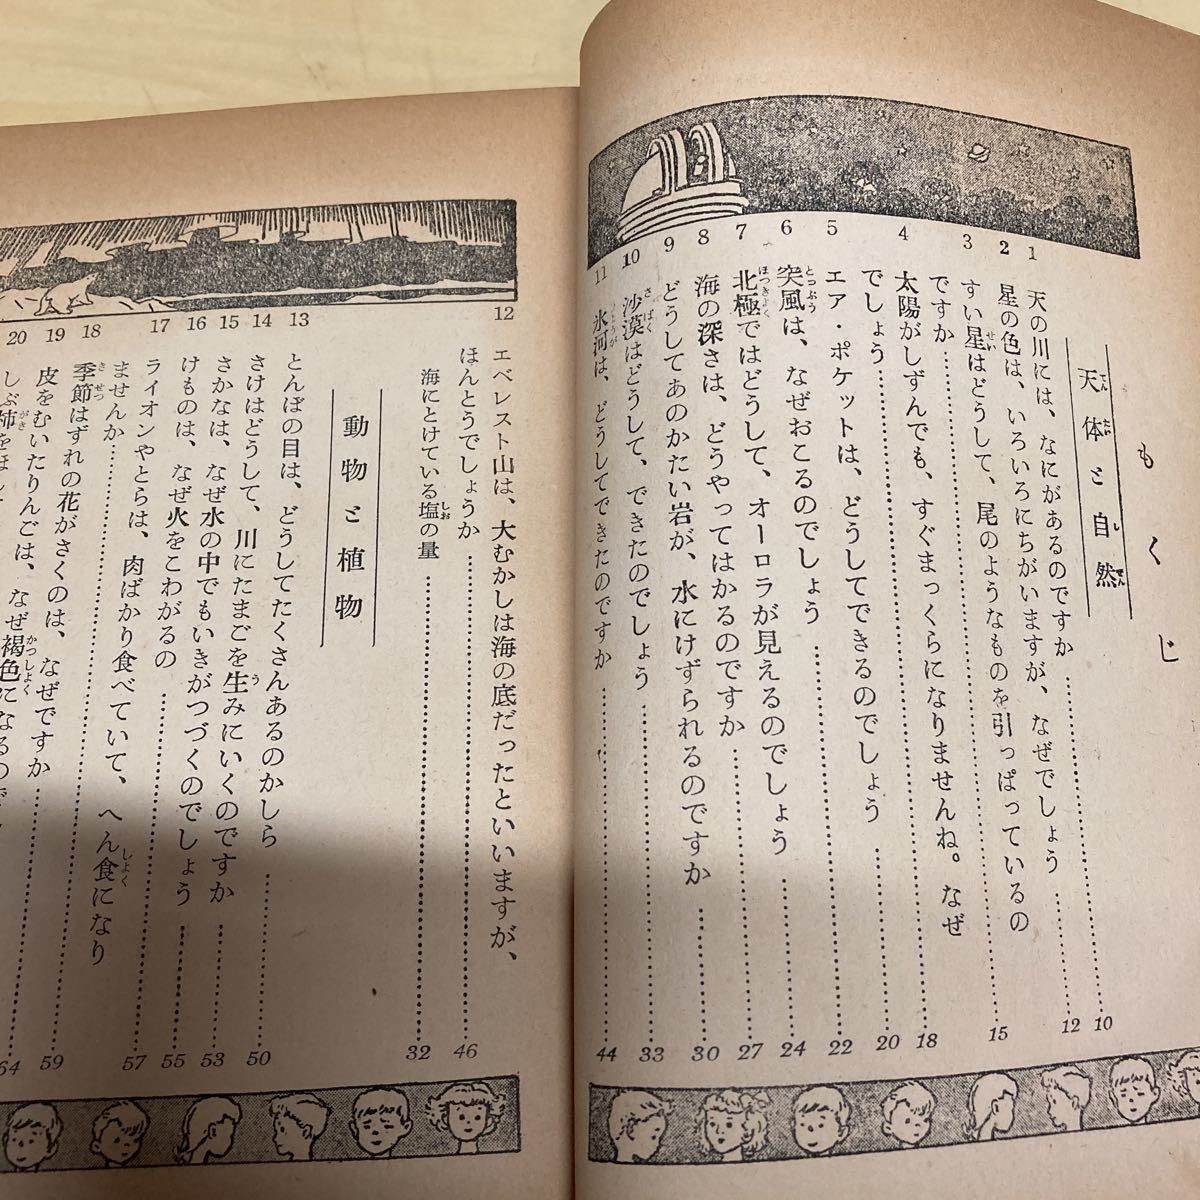 もくじ
天体と自然
1 天の川には、なにがあるのですか……10
2 星の色は、いろいろにちがいますが、なぜでしょう……12
3 すい星はどうして、尾のようなものを引っぱっているの
ですか……15
4 太陽がしずんでも、すぐまっくらになりませんね。なぜ
でしょう……18
5 エア・ポケットは、どうしてできるのでしょう……20
6 突風は、なぜおこるのでしょう……22
7 北極ではどうして、オーロラが見えるのでしょう……24
8 海の深さは、どうやってはかるのですか……27
9 どうしてあのかたい岩が、水にけずられるのですか……30
10 沙漠はどうして、できたのでしょう……33
11 氷河は、どうしてできたのですか……44
12 エベレスト山は、大むかしは海の底だったといいますが、
ほんとうでしょうか……46
海にとけている塩の量……32
動物と植物
13 とんぼの目は、どうしてたくさんあるのかしら……50
14 さけはどうして、川にたまごを生みにいくのですか……53
15 さかなは、なぜ水の中でもいきがつづくのでしょう……55
16 けものは、なぜ火をこわがるの……57
17 ライオンやとらは、肉ばかり食べていて、へん食になり
ませんか……59
18 季節はずれの花がさくのは、なぜですか……64
19 皮をむいたりんごは、なぜ褐色になるので
20 しぶ柿をほし